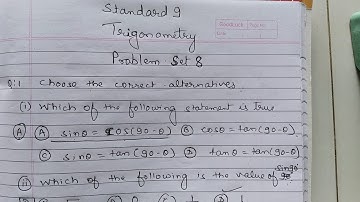 Standard 9
Trigonometry
Problem Set 8
Q:1 Choose the correct alternatives
(i) Which of the following statement is true
(A) (A) sinθ = cos(90-θ) (B) cosθ = tan(90-θ)
(C) sinθ = tan(90-θ) (D) tanθ = tan(90-θ)
(ii) Which of the following is the value of sin90